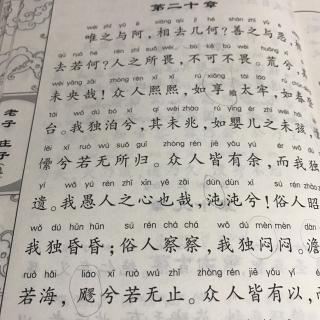 第二十章
wéi zhī yǔ ē xiāng qù jǐ hé shàn zhī yǔ è
唯之与阿，相去几何？善之与恶，
qù ruò hé rén zhī suǒ wèi bù kě bú wèi huāng xī
去若何？人之所畏，不可不畏。荒兮，其
wèi yāng zāi zhòng rén xī xī rú xiǎng tài láo rú chūn
未央哉！众人熙熙，如享太牢，如春登
tái wǒ dú bó xī qí wèi zhào rú yīng ér zhī wèi hái
台。我独泊兮，其未兆，如婴儿之未孩，
lěi xī ruò wú suǒ guī zhòng rén jiē yǒu yú ér wǒ dú
儽兮若无所归。众人皆有余，而我独
yí wǒ yú rén zhī xīn yě zāi dùn dùn xī sú rén zhāo
遗。我愚人之心也哉，沌沌兮！俗人昭
wǒ dú hūn hūn sú rén chá chá wǒ dú mèn mèn
我独昏昏；俗人察察，我独闷闷。澹
ruò hǎi liáo xī ruò wú zhǐ zhòng rén jiē yǒu yǐ
若海，飂兮若无止。众人皆有以，而
老子 庄子